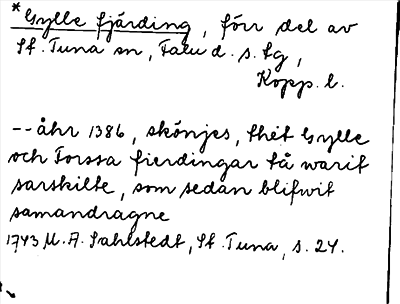 *Gylle fjärding, förr del av
St. Tuna sn, Falu d. s. tg,
Kopp. l.
-- åhr 1386, skönjes, thet Gylle
och Forssa fierdingar tå warit
sarskilte, som sedan blifwit
samandragne
1743 M. A. Sahlstedt, St. Tuna, s. 24.